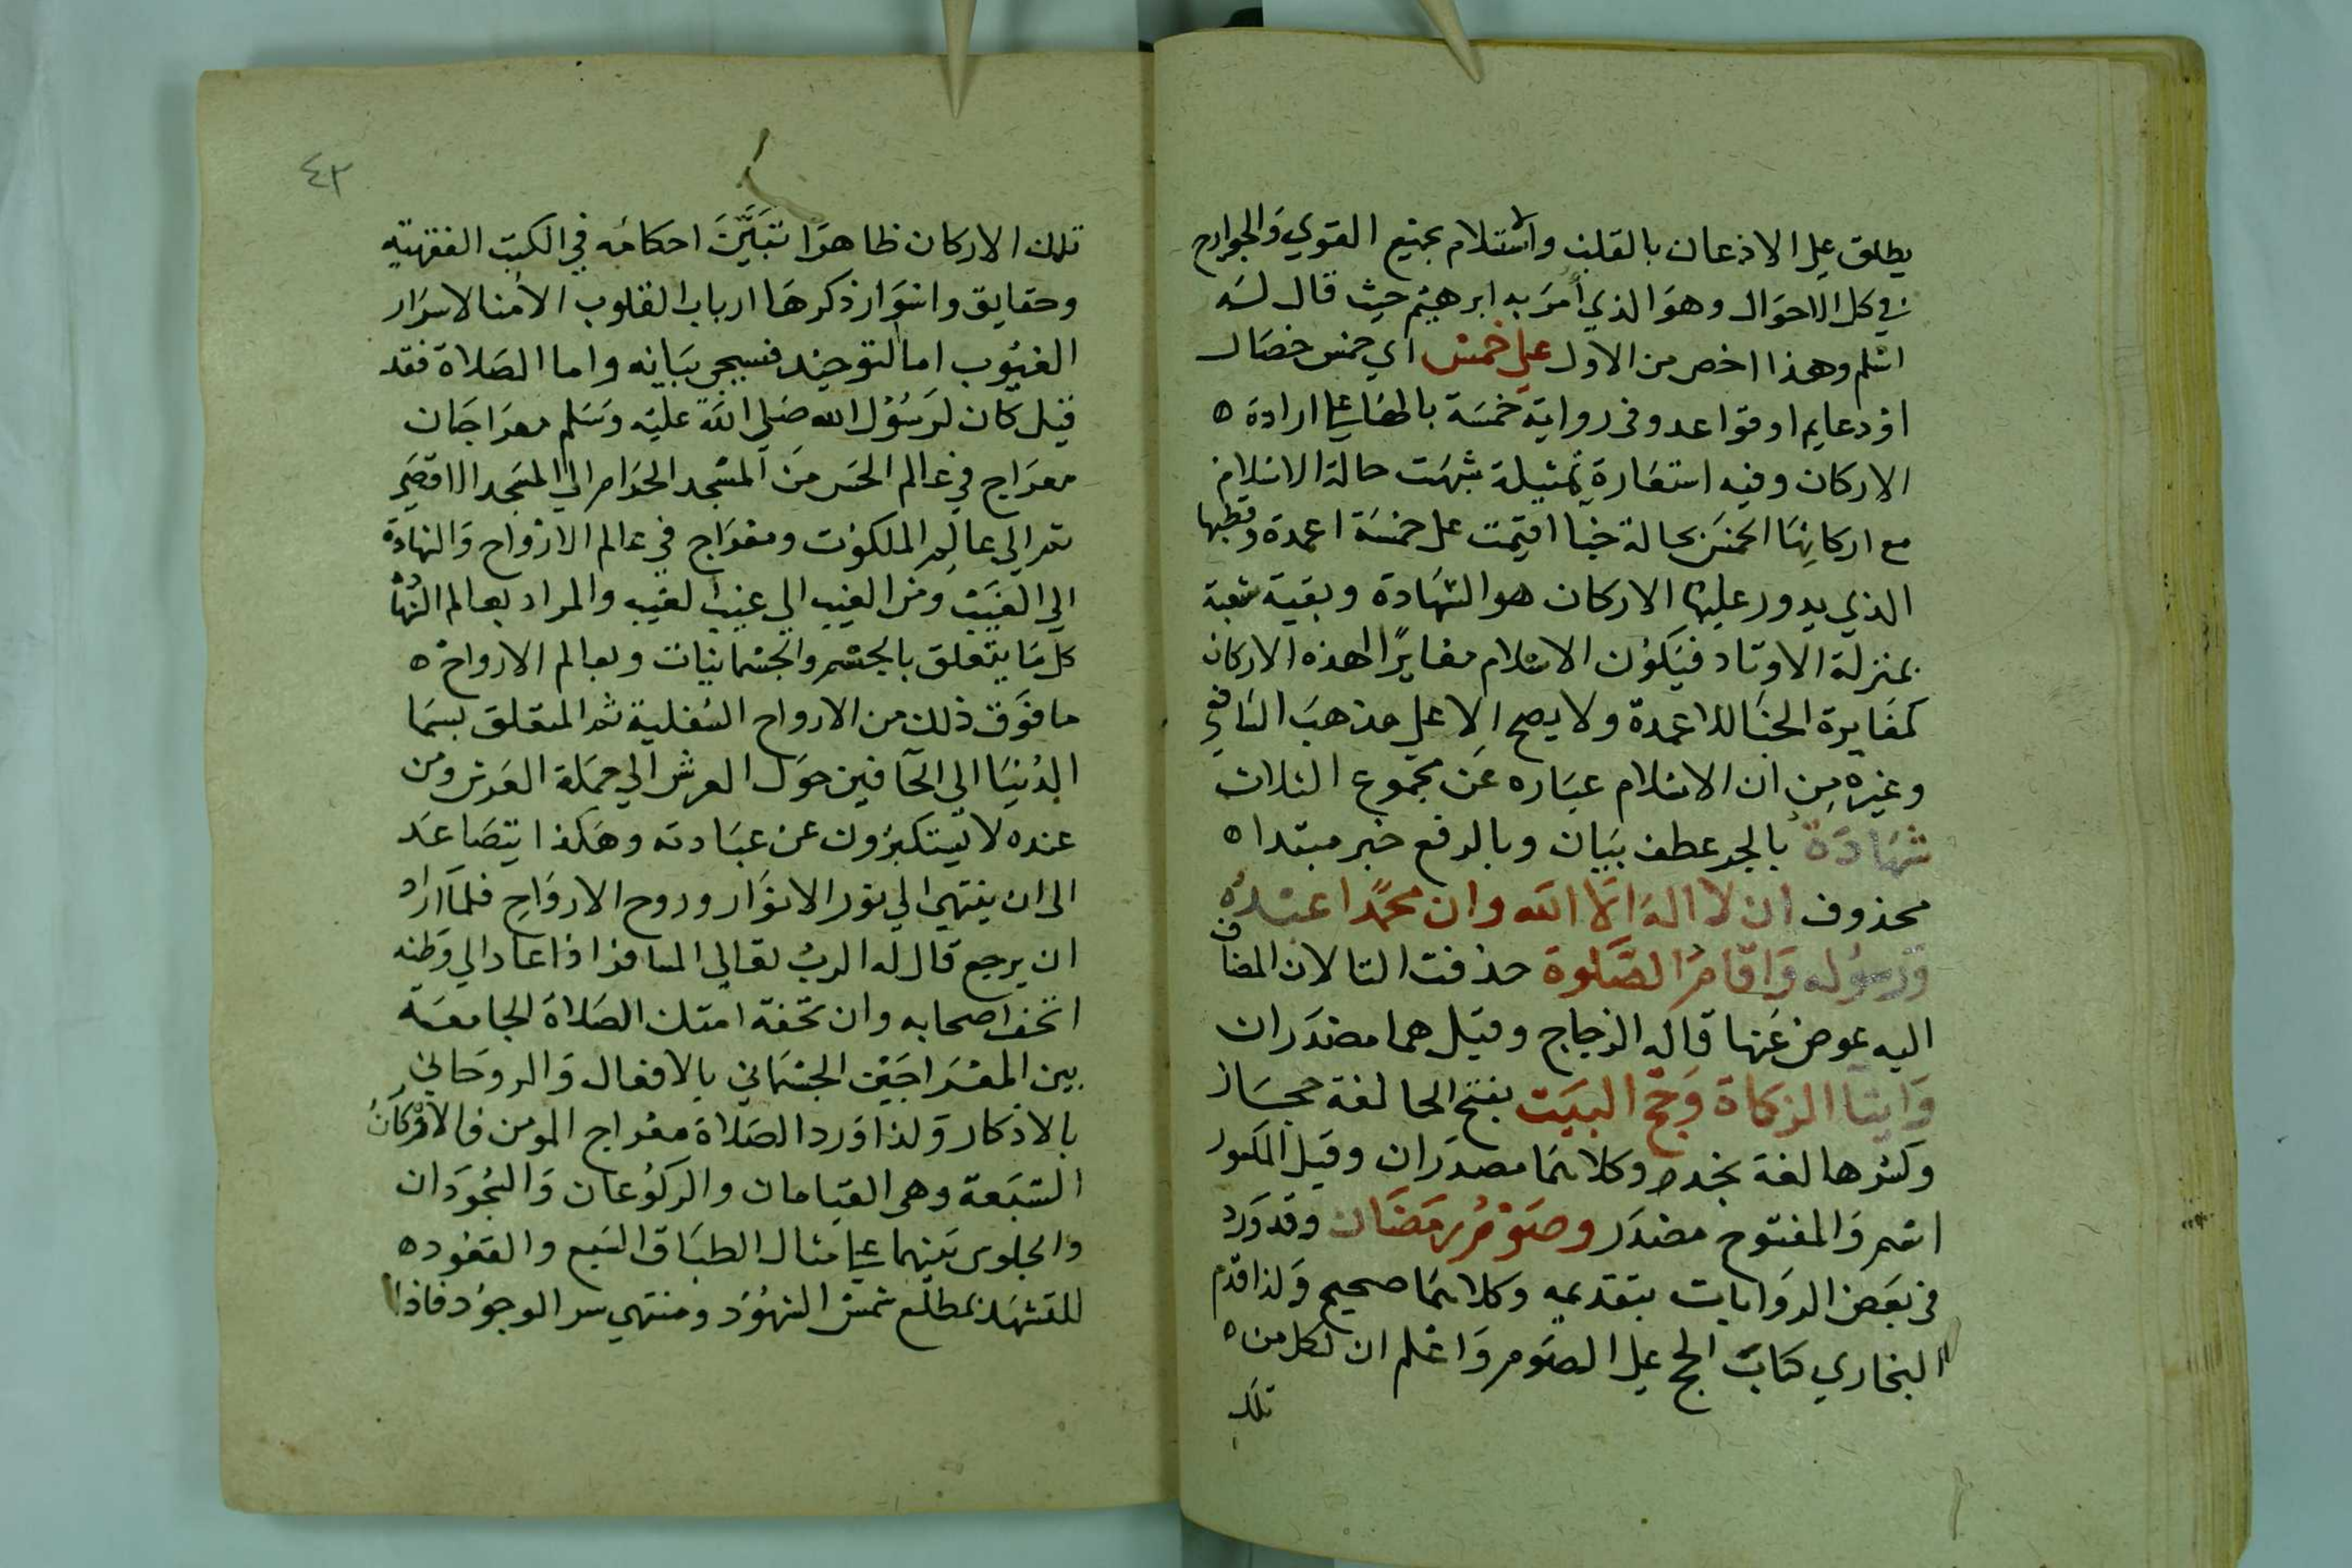 يطلق على الاذعان بالقلب والاستسلام بجميع القوي والجوارح
في كل الاحوال وهو الذي أمر به ابرهيم حيث قال له
اسلم وهذا اخص من الاول على خمس اي خمس خصال
او دعايم او قواعد وفي رواية خمسة بالهاء على ارادة ه
الاركان وفيه استعارة تمثيلة شبهت حالة الاسلام
مع اركانها الخمس بحالة خبا اقيمت على خمسة اعمدة وقطبها
الذي يدور عليها الاركان هو الشهادة وبقية شعبة
بمنزلة الاوتاد فيكون الاسلام مغايرًا لهذه الاركان
كمغايرة الخبا للاعمدة ولا يصح إلا على مذهب الشافعي
وغيره من ان الاسلام عباره عن مجموع الثلاث
شهادة بالجر عطف بيان وبالرفع خبر مبتدا ه
محذوف ان لا اله الا الله وان محمدًا عبده
ورسوله واقام الصلوة حذفت التا لان المضاف
اليه عوض عنها قاله الزجاج وقيل هما مصدران
وايتا الزكاة وحج البيت بفتح الحا لغة حجاز
وكسرها لغة نجد وكلاهما مصدران وقيل المكسور
اسم والمفتوح مصدر وصوم رمضان وقد ورد
في بعض الروايات بتقديمه وكلاهما صحيح ولذا قدم
البخاري كتاب الحج على الصوم واعلم ان لكل من ه
تلك
٤٣
تلك الاركان ظاهرا تبين احكامه في الكتب الفقهيه
وحقايق وانوار ذكرها ارباب القلوب الأمنا لاسرار
الغيوب اما التوحيد فسيجي بيانه واما الصلاة فقد
قيل كان لرسول الله صلى الله عليه وسلم معراجان
معراج في عالم الحس من المسجد الحرام الي المسجد الاقصي
ثم الي عالم الملكوت ومعراج في عالم الارواح والشهادة
الي الغيب ومن الغيب الي غيب الغيب والمراد بعالم الشها
كل ما يتعلق بالجسم والجسمانيات وبعالم الارواح ه
ما فوق ذلك من الارواح السفلية ثم المتعلق بسما
الدنيا الي الحافين حول العرش الي حملة العرش ومن
عنده لا يستكبرون عن عبادته وهكذا يتصاعد
الى ان ينتهي الي نور الانوار وروح الارواح فلما اراد
ان يرجع قال له الرب تعالي المسافر اذا عاد الي وطنه
اتحف اصحابه وان تحفة امتك الصلاة الجامعة
بين المعراجين الجسماني بالافعال والروحاني
بالاذكار ولذا ورد الصلاة معراج المومن فالاركان
السبعة وهي القيامان والركوعان والسجودان
والجلوس بينهما على مثال الطباق السبع والقعود ه
للتشهد بمطلع شمس الشهود ومنتهي سر الوجود فاذا